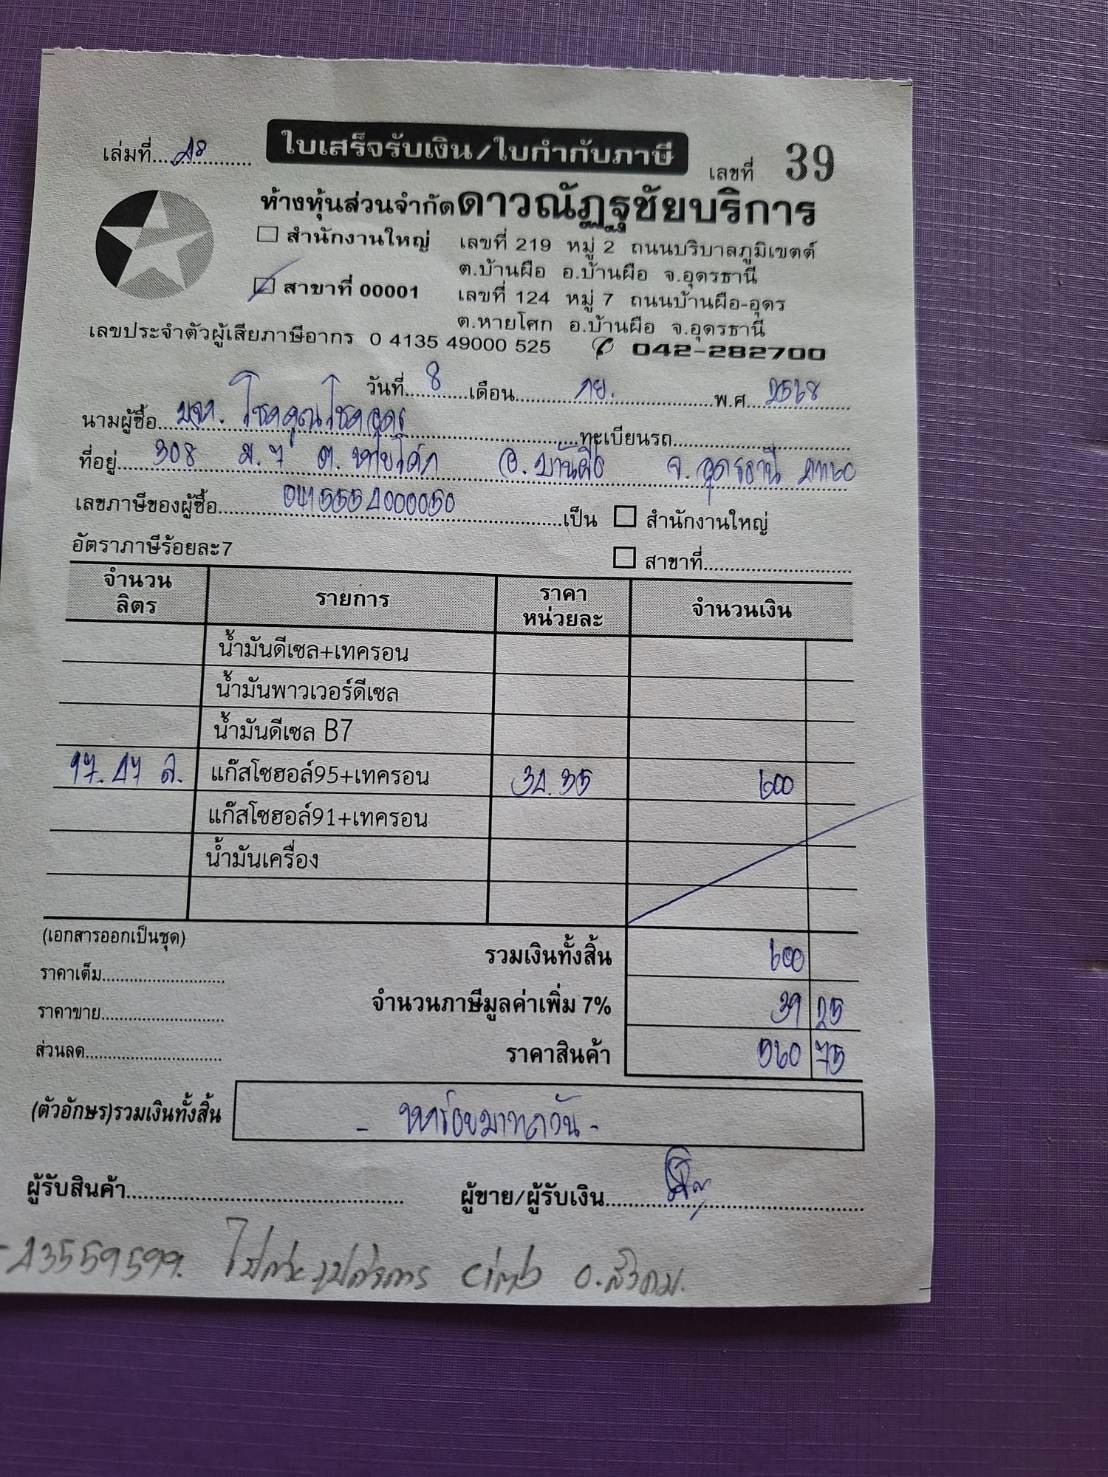 ใบเสร็จรับเงิน/ใบกำกับภาษี
เล่มที่.... 48 เลขที่ 39
ห้างหุ้นส่วนจำกัดดาวณัฏฐชัยบริการ
สำนักงานใหญ่ เลขที่ 219 หมู่ 2 ถนนบริบาลภูมิเขตต์
ต.บ้านผือ อ.บ้านผือ จ.อุดรธานี
สาขาที่ 00001 เลขที่ 124 หมู่ 7 ถนนบ้านผือ-อุดร
ต.หายโศก อ.บ้านผือ จ.อุดรธานี
เลขประจำตัวผู้เสียภาษีอากร 0 4135 49000 525 042-282700
วันที่ 8 เดือน กย. พ.ศ. 2568
นามผู้ซื้อ บจก. โชคคูณโชคอุดร ทะเบียนรถ
ที่อยู่ 308 ม.7 ต.หายโศก อ.บ้านผือ จ.อุดรธานี 41160
เลขภาษีของผู้ซื้อ 0415554000050 เป็น สำนักงานใหญ่
อัตราภาษีร้อยละ7 สาขาที่
จำนวนลิตร รายการ ราคาหน่วยละ จำนวนเงิน
น้ำมันดีเซล+เทครอน
น้ำมันพาวเวอร์ดีเซล
น้ำมันดีเซล B7
17.47 ล. แก๊สโซฮอล์95+เทครอน 34.35 600
แก๊สโซฮอล์91+เทครอน
น้ำมันเครื่อง
(เอกสารออกเป็นชุด) รวมเงินทั้งสิ้น 600
ราคาเต็ม
จำนวนภาษีมูลค่าเพิ่ม 7% 39 25
ราคาขาย
ราคาสินค้า 560 75
ส่วนลด
(ตัวอักษร)รวมเงินทั้งสิ้น - หกร้อยบาทถ้วน -
ผู้รับสินค้า ผู้ขาย/ผู้รับเงิน
-43559599. cimb อ.สังคม.